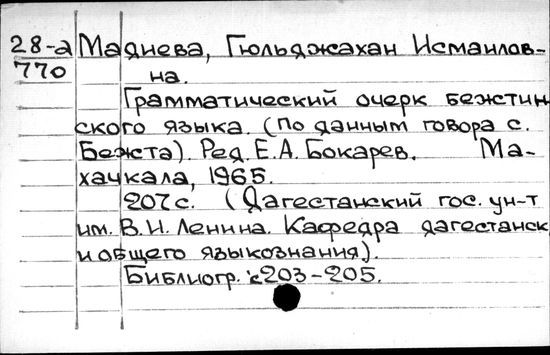 28-а Мадиева, Гюльджахан Исмаилов-
770 на.
Грамматический очерк бежтин-
ского языка. (По данным говора с.
Бежта). Ред. Е.А. Бокарев. Ма-
хачкала, 1965.
207 с. (Дагестанский гос. ун-т
им. В.И. Ленина. Кафедра дагестанск.
и общего языкознания).
Библиогр. с203-205.